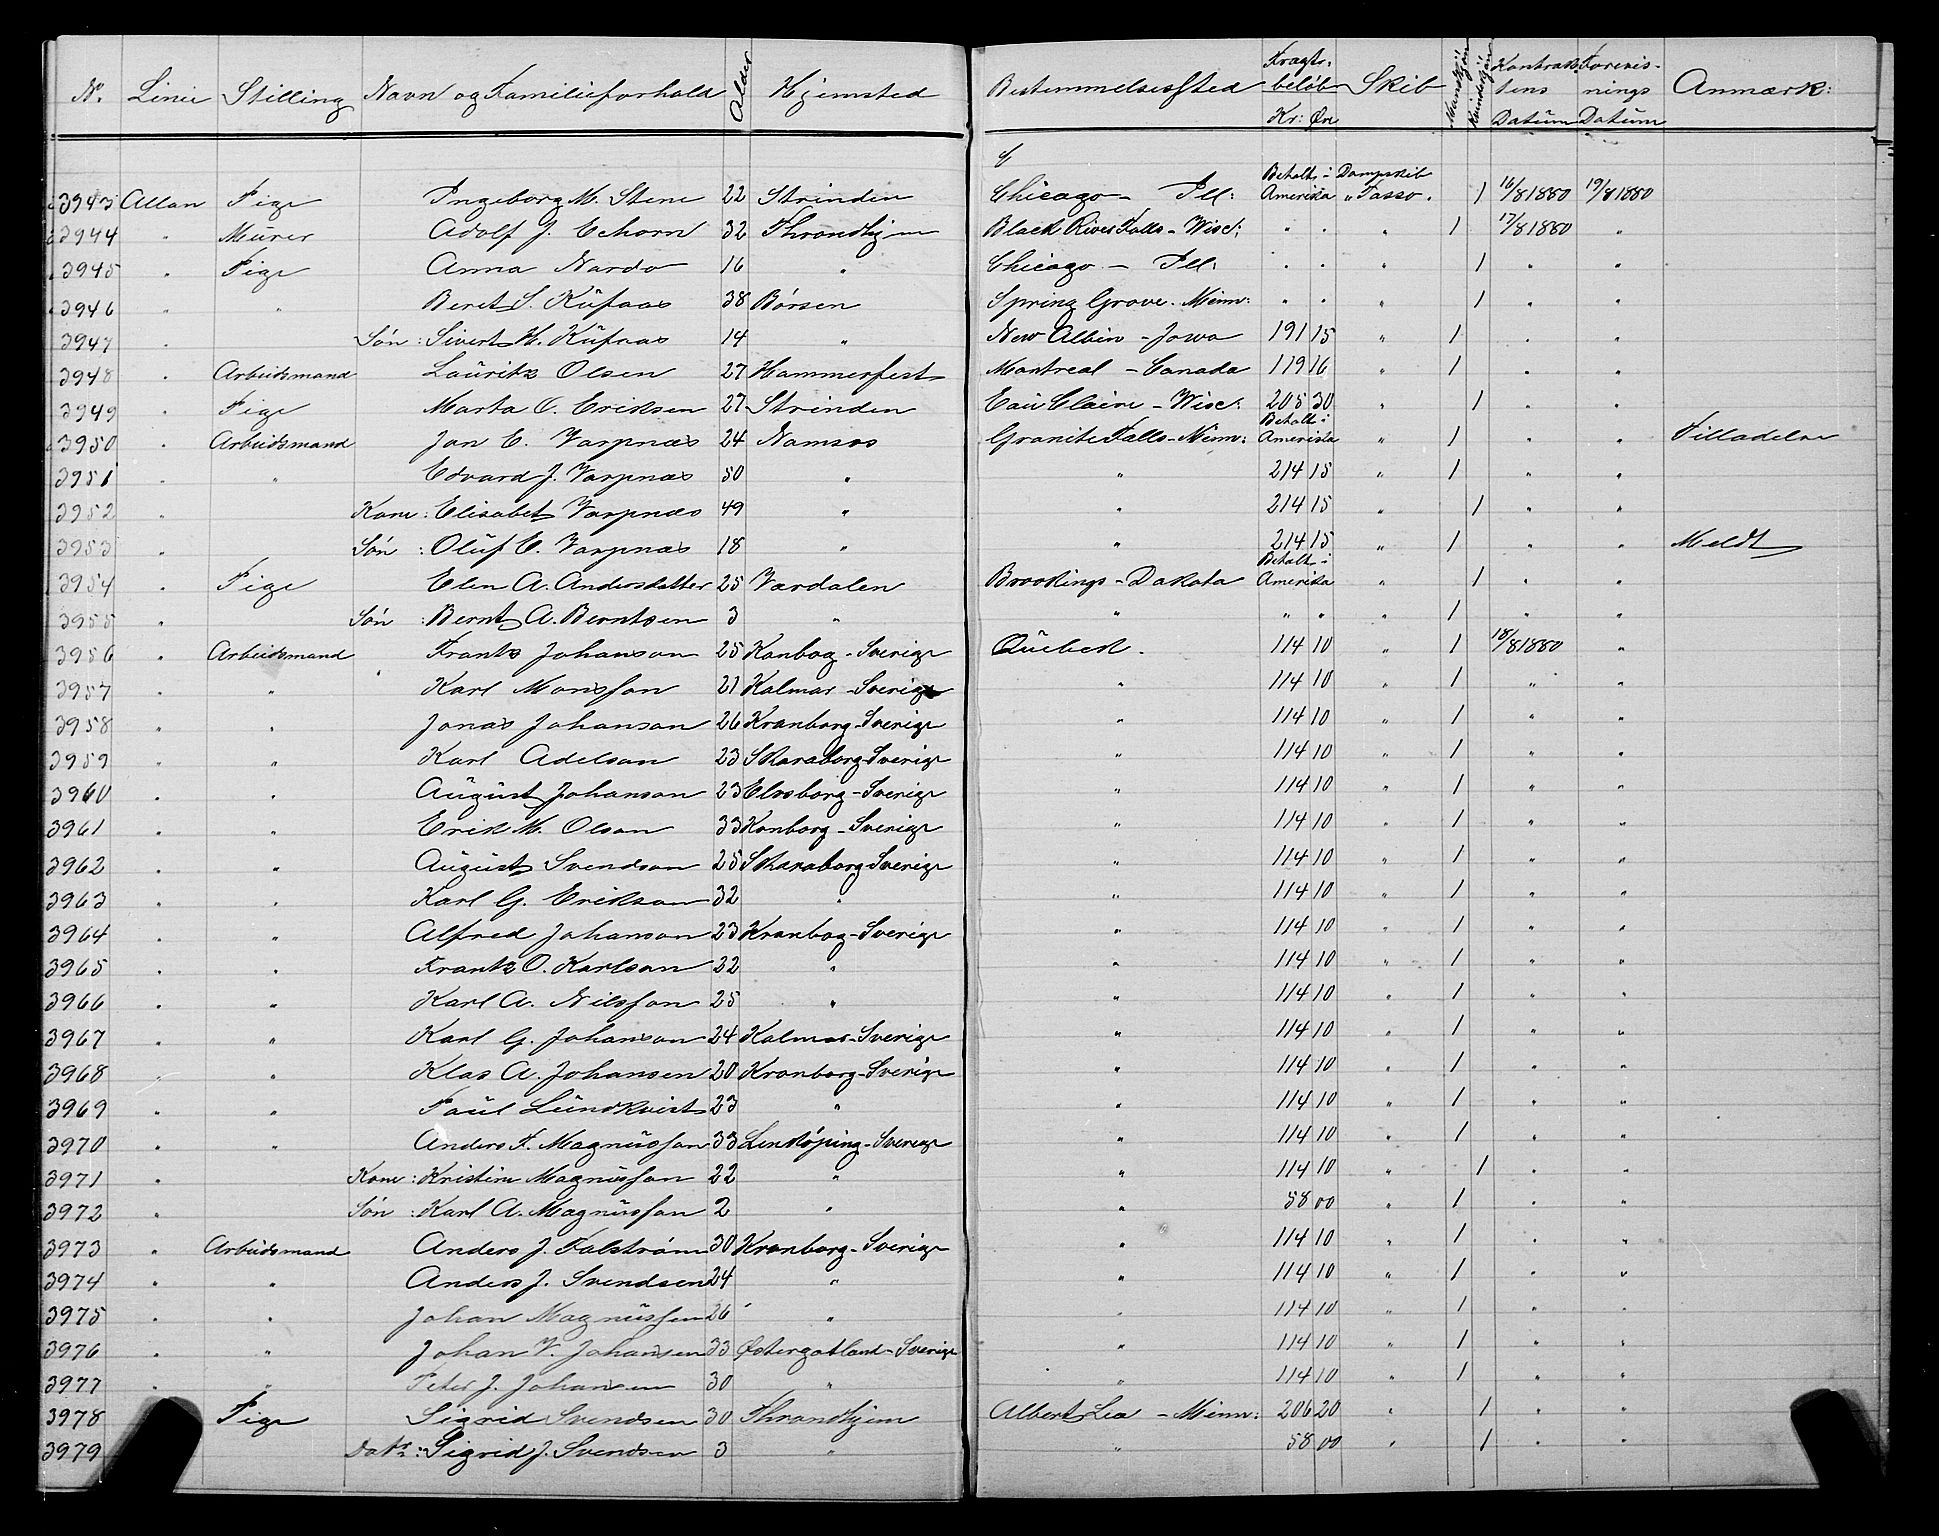 No. Linie Stilling Navn og Familieforhold Alder Hjemsted Bestemmelsessted Fragtbeløb Kr: Øre Skib Mandkjøn Kvindekjøn Kontraktens Datum Forevisnings Datum Anmærk:
3943 Allan Pige Ingeborg M. Stene 22 Strinden Chicago - Ill: Betalt i Amerika Dampskib "Tasso". 1 16/8 1880 19/8 1880
3944 " Murer Adolf J. Echorn 32 Throndhjem Black River Falls - Wisc: " " " 1 17/8 1880 "
3945 " Pige Anna Nardo 16 " Chicago - Ill: " " " 1 " "
3946 " " Beret S. Küfaas 38 Børsen Spring Grove. Minn: " " " 1 " "
3947 " Søn: Sivert H. Küfaas 14 " New Albin - Jowa 191 15 " 1 " "
3948 " Arbeidsmand Lauritz Olsen 27 Hammerfest Montreal - Canada 119 16 " 1 " "
3949 " Pige Marta O. Eriksen 27 Strinden Eau Claire - Wisc: 205 30 " 1 " "
3950 " Arbeidsmand Jon E. Varpnæs 24 Namsos Granite Falls - Minn: Betalt i Amerika " 1 " " Tilladelse
3951 " " Edvard J. Varpnæs 50 " " 214 15 " 1 " "
3952 " Kone: Elisabet Varpnæs 49 " " 214 15 " 1 " "
3953 " Søn: Oluf E. Varpnæs 18 " " 214 15 " 1 " " Meldt
3954 " Pige Elen A. Andersdatter 25 Værdalen Brookings - Dakota Betalt i Amerika " 1 " "
3955 " Søn: Bernt A. Berntsen 3 " " " " " 1 " "
3956 " Arbeidsmand Frants Johanson 25 Konbog - Sverige Quebeck. 114 10 " 1 18/8 1880 "
3957 " " Karl Monsson 21 Kalmar - Sverige " 114 10 " 1 " "
3958 " " Jonas Johanson 26 Kronborg - Sverige " 114 10 " 1 " "
3959 " " Karl Adelson 23 Skaraborg - Sverige " 114 10 " 1 " "
3960 " " August Johanson 23 Elvsborg - Sverige " 114 10 " 1 " "
3961 " " Erik M. Olson 33 Konborg - Sverige " 114 10 " 1 " "
3962 " " August Svendson 25 Skaraborg - Sverige " 114 10 " 1 " "
3963 " " Karl G. Erikson 32 " " 114 10 " 1 " "
3964 " " Alfred Johanson 23 Kronbog - Sverige " 114 10 " 1 " "
3965 " " Frants O. Karlson 22 " " 114 10 " 1 " "
3966 " " Karl A. Nilsson 25 " " 114 10 " 1 " "
3967 " " Karl G. Johanson 24 Kalmar - Sverige " 114 10 " 1 " "
3968 " " Klas A. Johansen 20 Kronborg - Sverige " 114 10 " 1 " "
3969 " " Paul Lundkvist 23 " " 114 10 " 1 " "
3970 " " Anders F. Magnusson 33 Linkøping - Sverige " 114 10 " 1 " "
3971 " Kone: Kristine Magnusson 22 " " 114 10 " 1 " "
3972 " Søn: Karl A. Magnusson 2 " " 58 00 " 1 " "
3973 " Arbeidsmand Anders J. Falstrøm 30 Kronborg - Sverige " 114 10 " 1 " "
3974 " " Anders J. Svendsen 24 " " 114 10 " 1 " "
3975 " " Johan Magnussen 26 " " 114 10 " 1 " "
3976 " " Johan V. Johansen 33 Østergotland - Sverige " 114 10 " 1 " "
3977 " " Peter J. Johansen 30 " " 114 10 " 1 " "
3978 " Pige Sigrid Svendsen 30 Throndhjem Albert Lea - Minn: 206 20 " 1 " "
3979 " Datr: Sigrid J. Svendsen 3 " " 58 00 " 1 " "